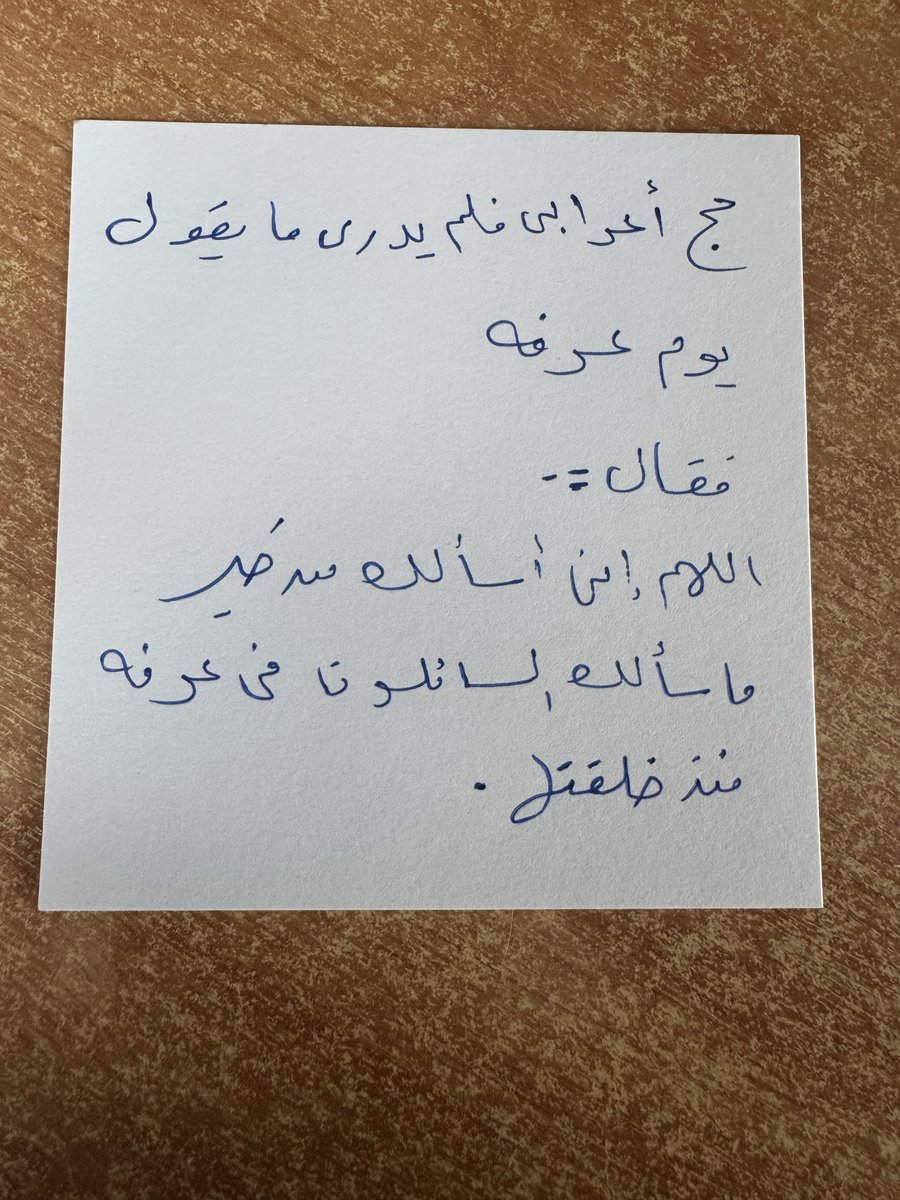 حج أعرابى فلم يدرى ما يقول
يوم عرفه
فقال =-
اللهم إنى أسألك من خير
ما سألك السائلون فى عرفه
منذ خلقتها .